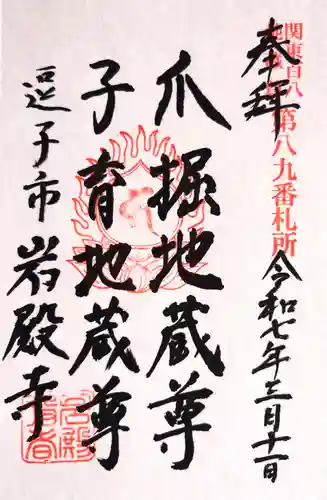 奉拝
関東百八
地蔵尊
第八九番札所
令和七年三月十一日
爪掘地蔵尊
子育地蔵尊
逗子市岩殿寺